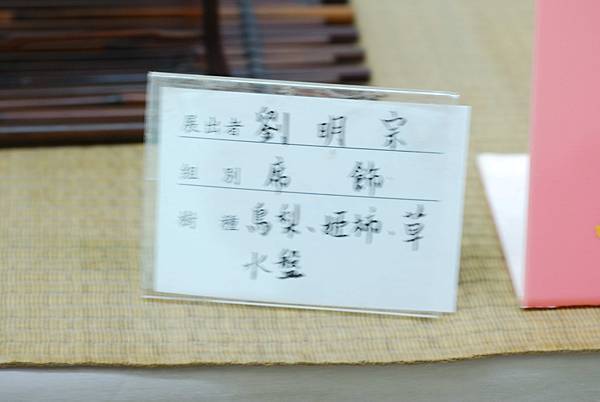 展出者 劉明宗
組別 席飾
樹種 鳥梨、姬柿、草
水盤